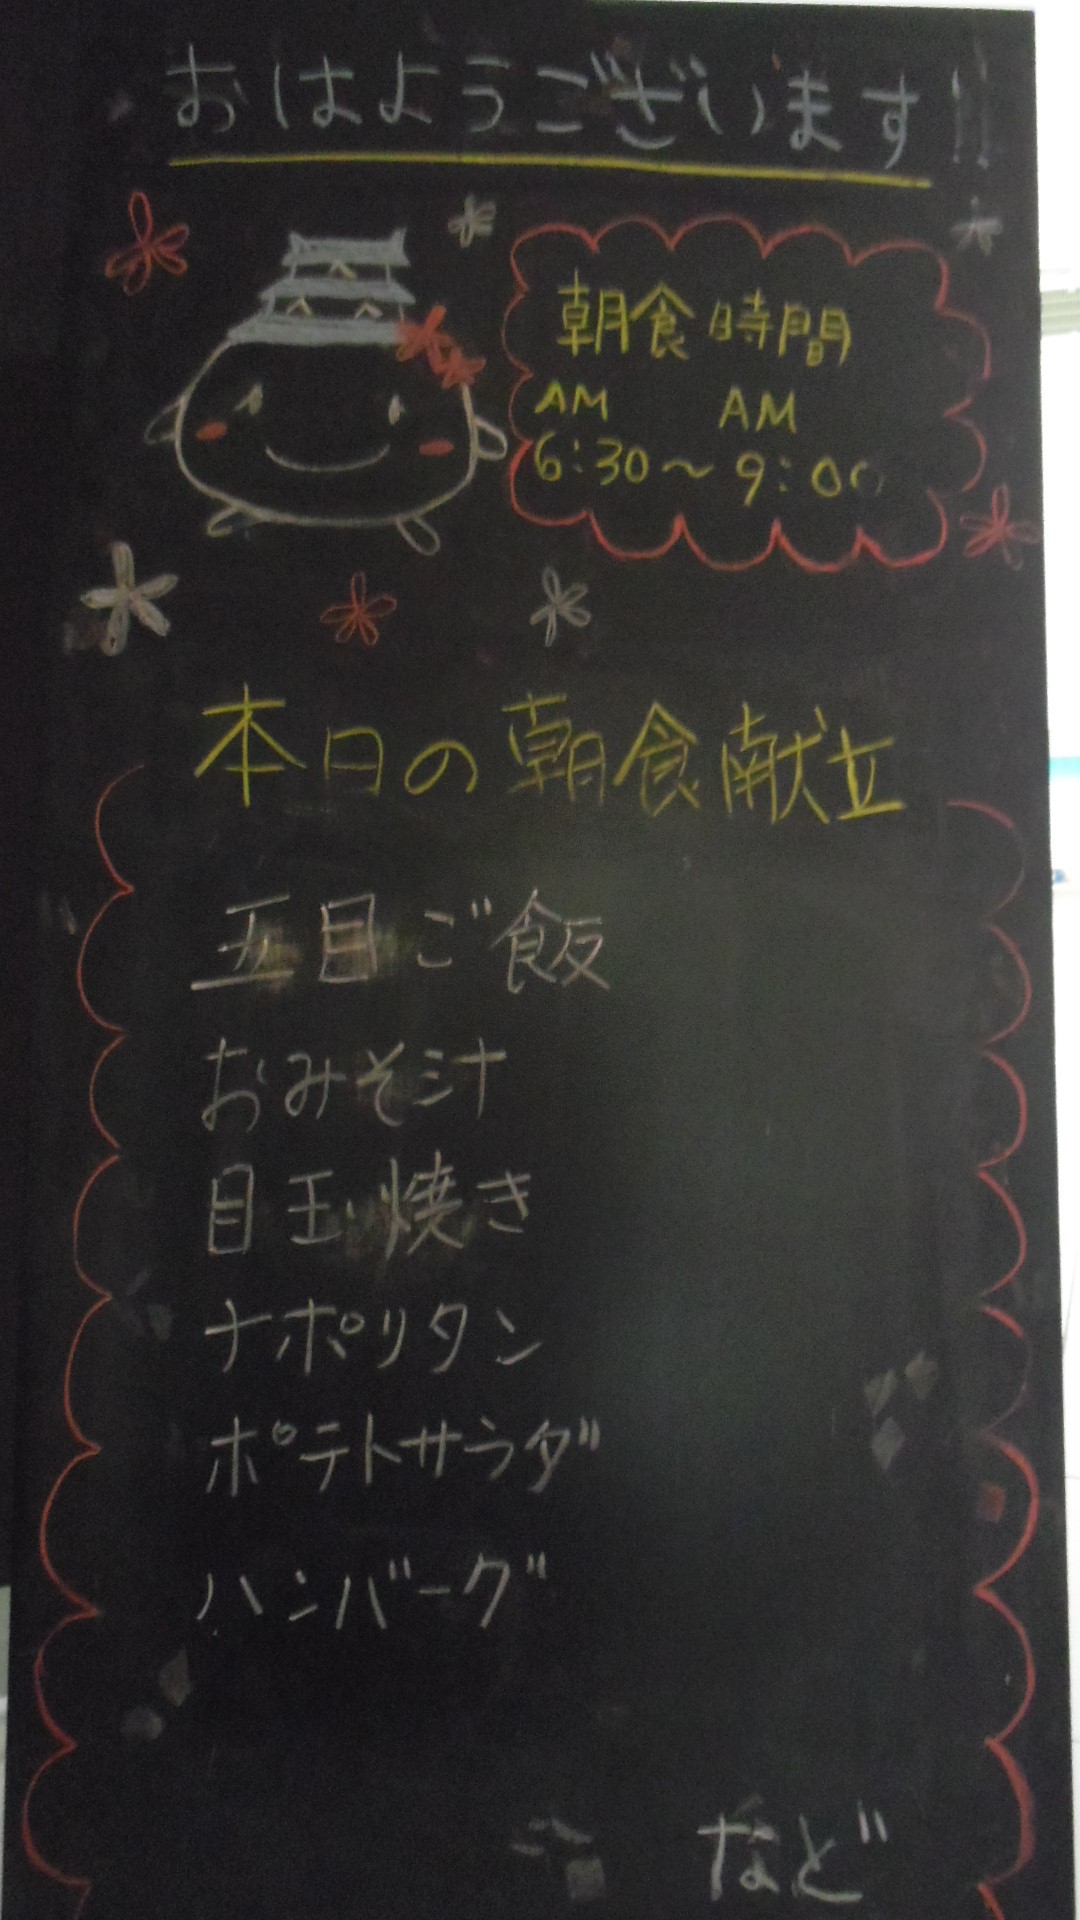 おはようございます!!
朝食時間
AM AM
6:30～9:00
本日の朝食献立
五目ご飯
おみそ汁
目玉焼き
ナポリタン
ポテトサラダ
ハンバーグ
など